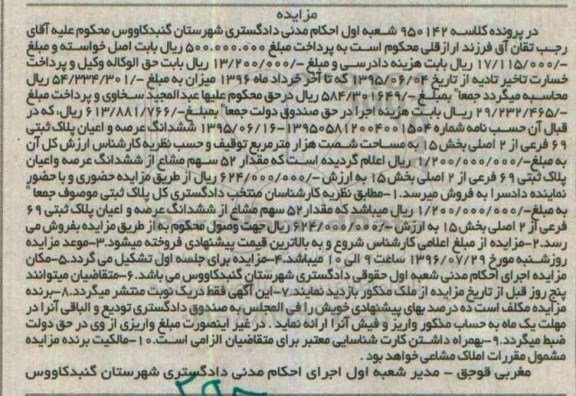 مزایده
در پرونده کلاسه ۹۵۰۱۴۲ شعبه اول احکام مدنی دادگستری شهرستان گنبدکاووس محکوم علیه آقای
رجب تقان آق فرزند اراز قلی محکوم است به پرداخت مبلغ ۵۰۰.۰۰۰.۰۰۰ ریال بابت اصل خواسته و مبلغ
۱۷/۱۱۵/۰۰۰/- ریال بابت هزینه دادرسی و مبلغ ۱۳/۲۰۰/۰۰۰/- ریال بابت حق الوکاله وکیل و پرداخت
خسارت تاخیر تادیه از تاریخ ۱۳۹۵/۰۶/۰۴ که تا آخر خرداد ماه ۱۳۹۶ میزان به مبلغ ۵۴/۳۳۴/۳۰۱/- ریال
محاسبه میگردد جمعا" بمبلغ ۵۸۴/۳۰۱۶۴۹/- ریال درحق محکوم علیها عبدالمجید سخاوی و پرداخت مبلغ
۲۹/۲۳۲/۴۶۵/- ریال بابت هزینه اجرا در حق صندوق دولت جمعا" بمبلغ ۶۱۳/۸۸۱/۷۶۶/- ریال، که در
قبال آن حسب نامه شماره ۱۳۹۵۰۵۸۱۲۰۰۴۰۰۱۵۰۴-۱۳۹۵/۰۶/۱۶ ششدانگ عرصه و اعیان پلاک ثبتی
۶۹ فرعی از ۲ اصلی بخش ۱۵ به مساحت شصت هزار مترمربع توقیف و حسب نظریه کارشناس ارزش کل آن
به مبلغ ۱/۲۰۰/۰۰۰/۰۰۰/- ریال اعلام گردیده است که مقدار ۵۲ سهم مشاع از ششدانگ عرصه واعیان
پلاک ثبتی ۶۹ فرعی از ۲ اصلی بخش ۱۵ به ارزش ۶۲۴/۰۰۰/۰۰۰/- ریال از طریق مزایده حضوری و با حضور
نماینده دادسرا به فروش میرسد.۱-مطابق نظریه کارشناسان منتخب دادگستری کل پلاک ثبتی موصوف جمعا"
به مبلغ ۱/۲۰۰/۰۰۰/۰۰۰/- ریال میباشد که مقدار ۵۲ سهم مشاع از ششدانگ عرصه و اعیان پلاک ثبتی ۶۹
فرعی از ۲ اصلی بخش ۱۵ به ارزش ۶۲۴/۰۰۰/۰۰۰/- ریال جهت وصول محکوم به از طریق مزایده بفروش می
رسد.۲-مزایده از مبلغ اعلامی کارشناس شروع و به بالاترین قیمت پیشنهادی فروخته میشود.۳-موعد مزایده
روز شنبه مورخ ۱۳۹۶/۰۷/۲۹ ساعت ۹ الی ۱۰ میباشد.۴-مزایده برای جلسه اول تشکیل می گردد.۵-مکان
مزایده اجرای احکام مدنی شعبه اول حقوقی دادگستری شهرستان گنبدکاووس می باشد.۶-متقاضیان میتوانند
پنج روز قبل از تاریخ مزایده از ملک مذکور بازدید نمایند.۷-این آگهی فقط در یک نوبت منتشر میگردد.۸-برنده
مزایده مکلف است ده درصد بهای پیشنهادی خویش را فی المجلس به صندوق دادگستری تودیع و الباقی آنرا در
مهلت یک ماه به حساب مذکور واریز و فیش آنرا ارائه نماید . در غیر اینصورت مبلغ واریزی از وی در حق دولت
ضبط میگردد.۹-بهمراه داشتن کارت شناسایی معتبر برای متقاضیان الزامی است.۱۰-مالکیت برنده مزایده
مشمول مقررات املاک مشاعی خواهد بود .
مغربی قوجق - مدیر شعبه اول اجرای احکام مدنی دادگستری شهرستان گنبدکاووس